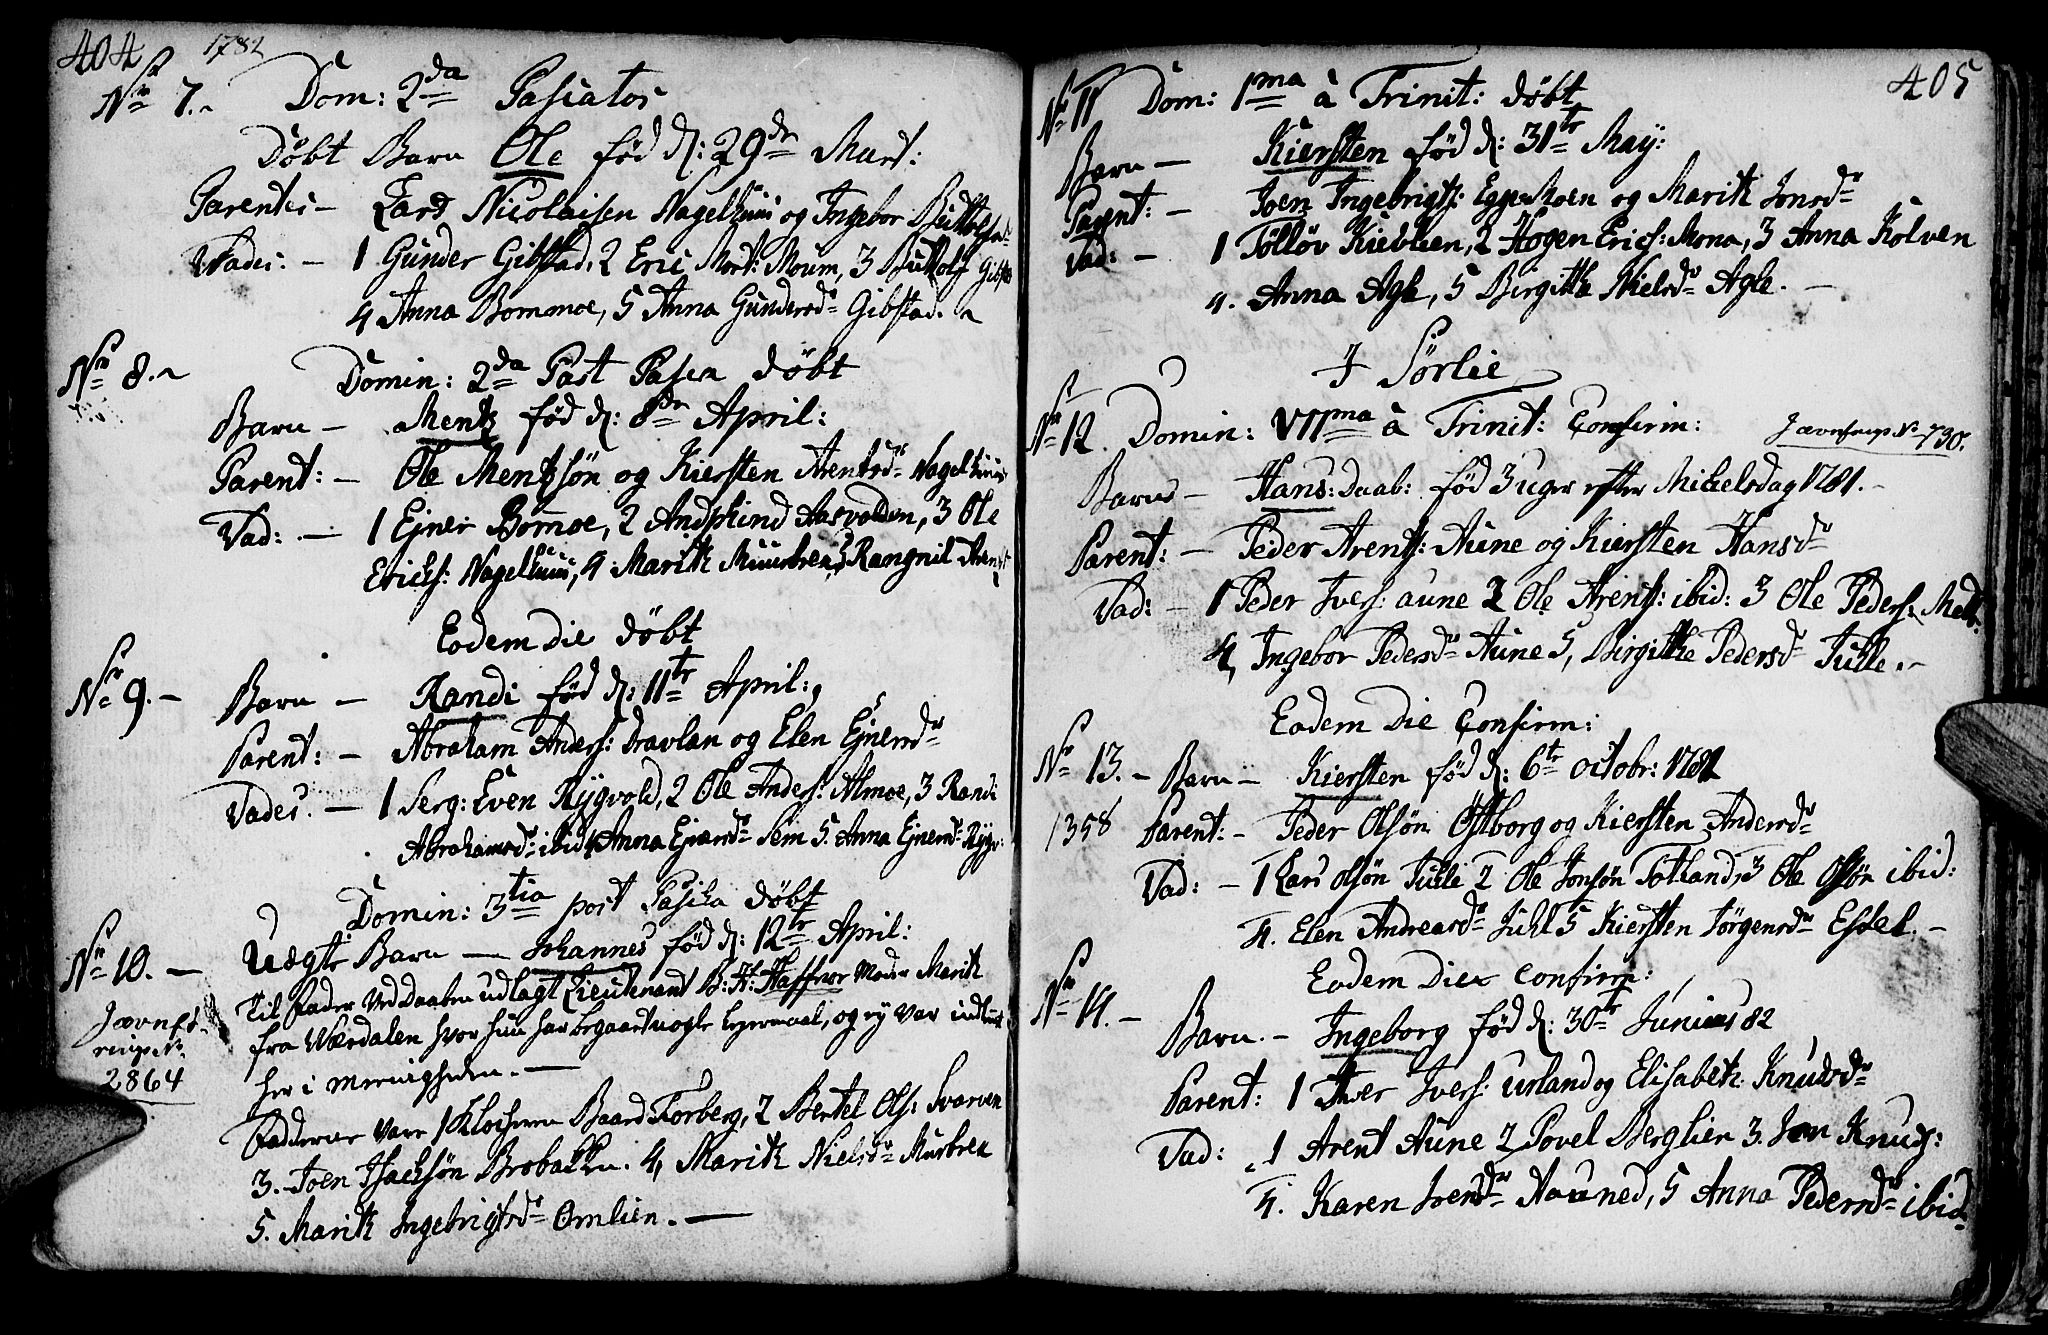 404 1782
No 7. Dom: 2da Pascatos
Døbt Barn Ole fød d: 29de Mart:
Parentes - Lars Nicolaisen Nagelhuus og Ingebor
Fades: - 1 Gunder Gibstad, 2 Eric Mort: Moum, 3 Buttolf Gibstad
4 Anna Bommoe, 5 Anna Gundersd: Gibstad.
No 8. Domin: 2da Post Pascha døbt
Barn - Mentz fød d: 8de April:
Parent: - Ole Mentzsøn og Kiersten Arentsd: Nagelhuus
Fad: - 1 Ejner Bommoe, 2 Andphind Aasvolden, 3 Ole
Erichs: Nagelhuus, 4 Marith Muusbren, 5 Rangnil
Eodem die døbt
No 9. - Barn - Randi fød d: 11te April:
Parent: - Abraham Anders: Dravlan og Elen Ejnersd:
Fades. - 1 Serg: Even Rygvold, 2 Ole Anders: Almoe, 3 Randi
Abrahamsd: ibid 4 Anna Ejnersd: Sem 5. Anna Ejnersd: Rygv:
Domin: 3tia post Pascha døbt
No 10. - Uægte Barn - Johannes fød d: 12te April:
Til Fader ved Daaben udlagt Lieutenant B: H: Haffner Moder Marith
fra Værdalen hvor hun har begaaet nogle Lejermaal, og ej var indtagt
her i Menigheden. -
Jævnf.
2864
Fadderne vare 1 Klocheren Baard Forberg, 2 Bertel Ols: Svarven
3. Joen Isachsøn Brobakken. 4, Marith Nielsd: Musbrek
5. Marith Ingebrigtsd: Omlien. -
405
No 11 Dom: 1ma à Trinit: døbt
Barn - Kiersten fød d: 31te May:
Parent: - Joen Ingebrigts: Eggemoen og Marith Jonsd:
Fad: - 1 Tølløv 2 Hogen Erics: Mona, 3 Anna Kolven
4. Anna Agle, 5 Birgithe Nielsd: Agle. -
I Sørlie
No 12. Domin: VIIma à Trinit: Confirm: No 730.
Barn - Hans: Daab: fød 3 uger efter Michelsdag 1781. -
Parent: - Peder Arents: Aune og Kiersten Hansd:
Fad: - 1 Peder Ivers: aune 2 Ole Arents: ibid: 3 Ole Peders:
4, Ingebor Pedersd: Aune 5, Birgithe Pedersd: Tulle.
Eodem Die Confirm:
No 13. - Barn - Kiersten fød d: 6te octobr: 1781
1358 Parent: - Peder Olsøn Østborg og Kiersten Andersd:
Fad: - 1 Lars Olsøn Tulle 2 Ole Jonsøn Totland, 3 Ole Olsøn ibid:
4. Elen Andreasd: Juhl 5 Kiersten Jørgensd: Estel. -
Eodem Die Confirm:
No 14. - Barn. - Ingeborg fød d: 30te Junius 82
Parent: 1 Iver Ivers: urland og Elisabeth Knudsd:
Fad: 1 Arent Aune 2 Povel Berglien 3. Jon Knuds:
4. Karen Joensd: Aauned, 5 Anna Pedersd: ibid